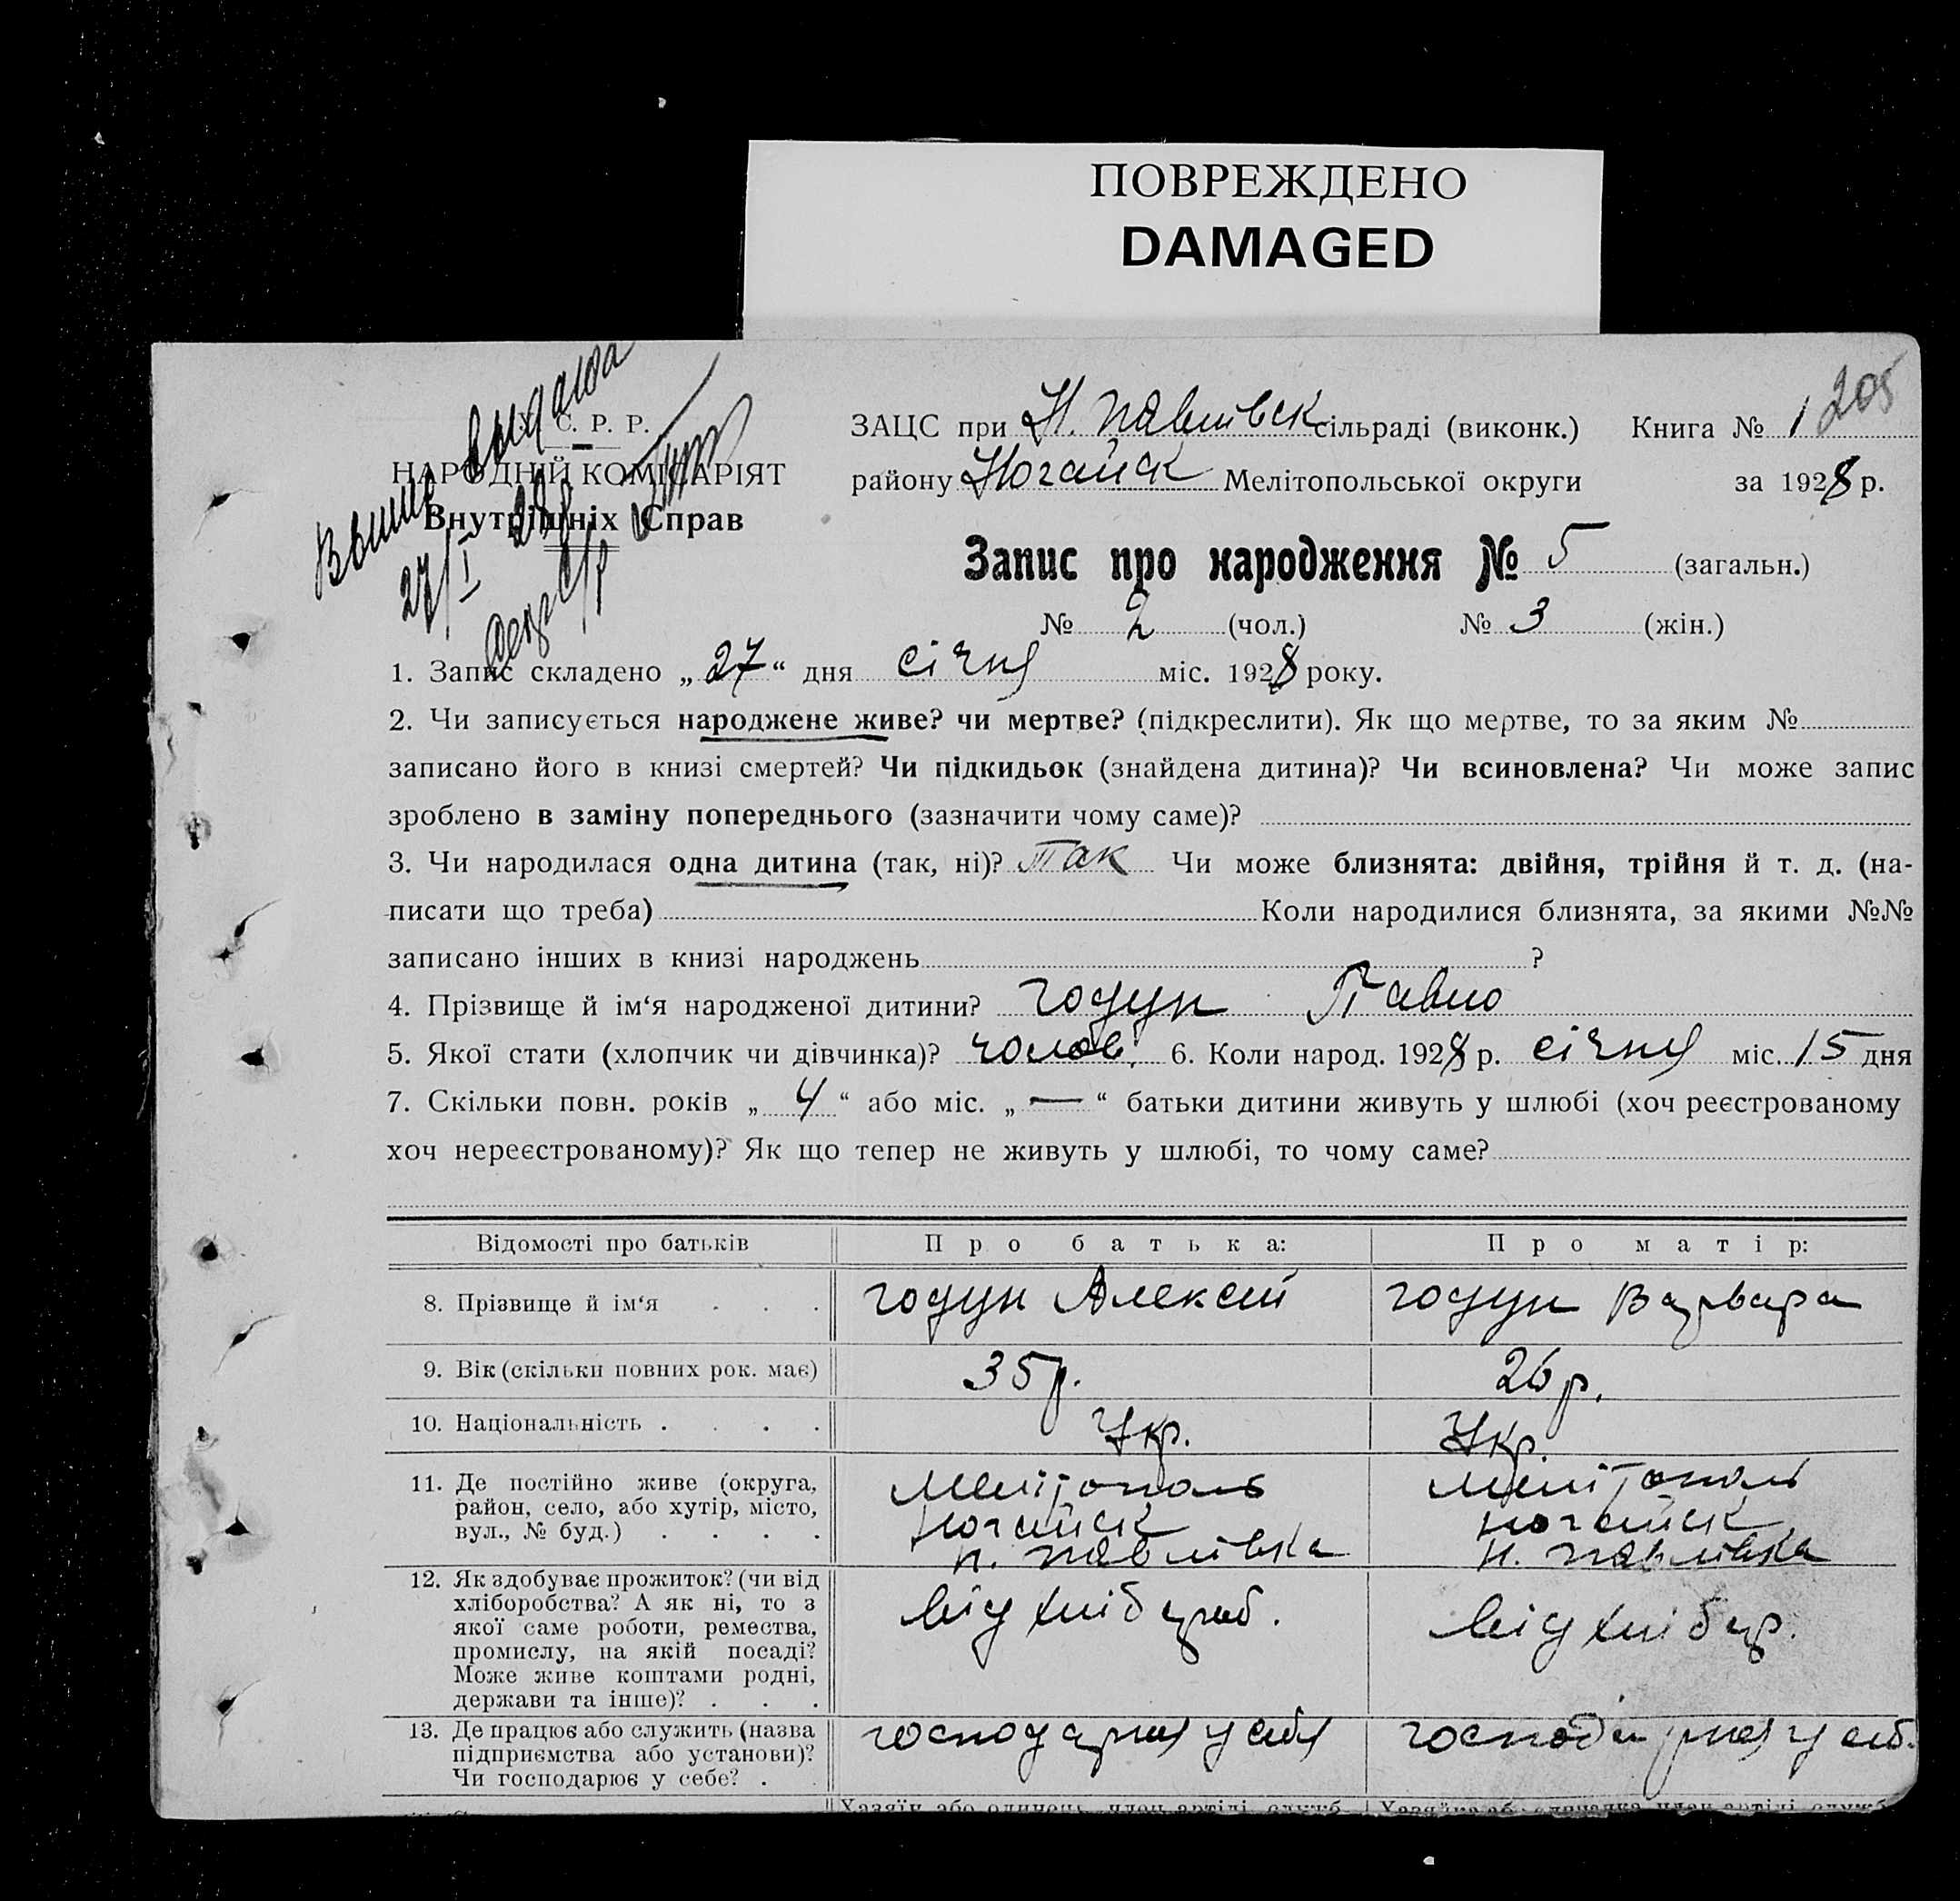 ПОВРЕЖДЕНО
DAMAGED
205
С. Р. Р.
НАРОДНІЙ КОМІСАРІЯТ
Внутрішніх Справ
27/I 28
ЗАЦС при Н. Павлівск сільраді (виконк.) Книга № 1
району Ногайск Мелітопольської округи за 1928 р.
Запис про народження № 5 (загальн.)
№ 2 (чол.) № 3 (жін.)
1. Запис складено „27“ дня січня міс. 1928 року.
2. Чи записується народжене живе? чи мертве? (підкреслити). Як що мертве, то за яким №
записано його в книзі смертей? Чи підкидьок (знайдена дитина)? Чи всиновлена? Чи може запис
зроблено в заміну попереднього (зазначити чому саме)?
3. Чи народилася одна дитина (так, ні)? так Чи може близнята: двійня, трійня й т. д. (на-
писати що треба) Коли народилися близнята, за якими №№
записано інших в книзі народжень ?
4. Прізвище й ім‘я народженої дитини? Годун Павло
5. Якої стати (хлопчик чи дівчинка)? чолов. 6. Коли народ. 1928 р. січня міс. 15 дня
7. Скільки повн. років „4“ або міс. „—“ батьки дитини живуть у шлюбі (хоч реєстрованому
хоч нереєстрованому)? Як що тепер не живуть у шлюбі, то чому саме?
Відомості про батьків Про батька: Про матір:
8. Прізвище й ім‘я . . . Годун Алексей Годун Варвара
9. Вік (скільки повних рок. має) 35 р. 26 р.
10. Національність . . . . Укр. Укр.
11. Де постійно живе (округа,
район, село, або хутір, місто,
вул., № буд.) . . . .
Мелітополь
Ногайск
Н. Павлівка
Мелітополь
Ногайск
Н. Павлівка
12. Як здобуває прожиток? (чи від
хліборобства? А як ні, то з
якої саме роботи, ремества,
промислу, на якій посаді?
Може живе коштами родні,
держави та інше)? . . .
від хліб
від хліб
13. Де працює або служить (назва
підприємства або установи)?
Чи господарює у себе? .
господарює у себя
господарює у себ.
Хазяїн або одинець, член артілі, служб.